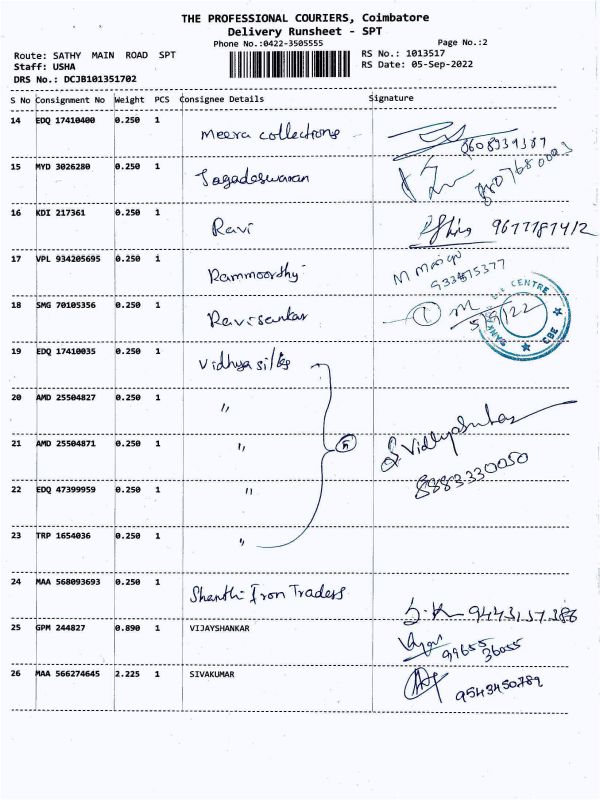 THE PROFESSIONAL COURIERS, Coimbatore
Delivery Runsheet - SPT
Phone No.:0422-3505555 Page No.:2
Route: SATHY MAIN ROAD SPT RS No.: 1013517
Staff: USHA RS Date: 05-Sep-2022
DRS No.: DCJB101351702
S No Consignment No Weight PCS Consignee Details Signature
14 EDQ 17410400 0.250 1 Meera collections
15 MYD 3026280 0.250 1 Jagadeswaran
16 KDI 217361 0.250 1 Ravi 9677787412
17 VPL 934205695 0.250 1 Rammoorthy
18 SMG 70105356 0.250 1 Ravisankar 5/9/22
CENTRE
CBE
19 EDQ 17410035 0.250 1 Vidhya silks
20 AMD 25504827 0.250 1 "
21 AMD 25504871 0.250 1 " 5
8883330050
22 EDQ 47399959 0.250 1 "
23 TRP 1654036 0.250 1 "
24 MAA 568093693 0.250 1 Shanthi Iron Traders
25 GPM 244827 0.890 1 VIJAYSHANKAR 99655 36055
26 MAA 566274645 2.225 1 SIVAKUMAR 9543450789